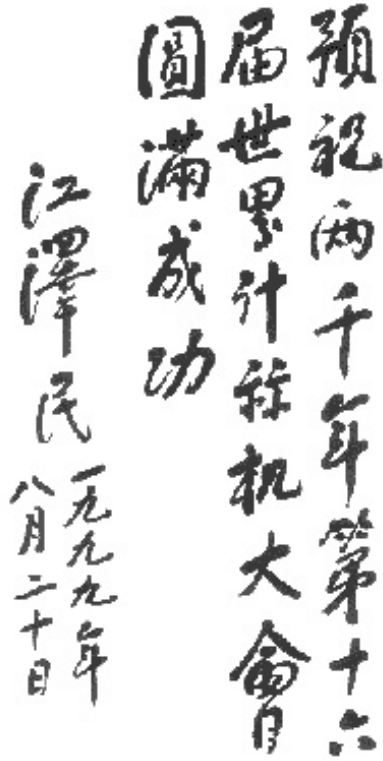 預祝两千年第十六
届世界计祘机大會
圓滿成功
江澤民
一九九九年
八月二十日